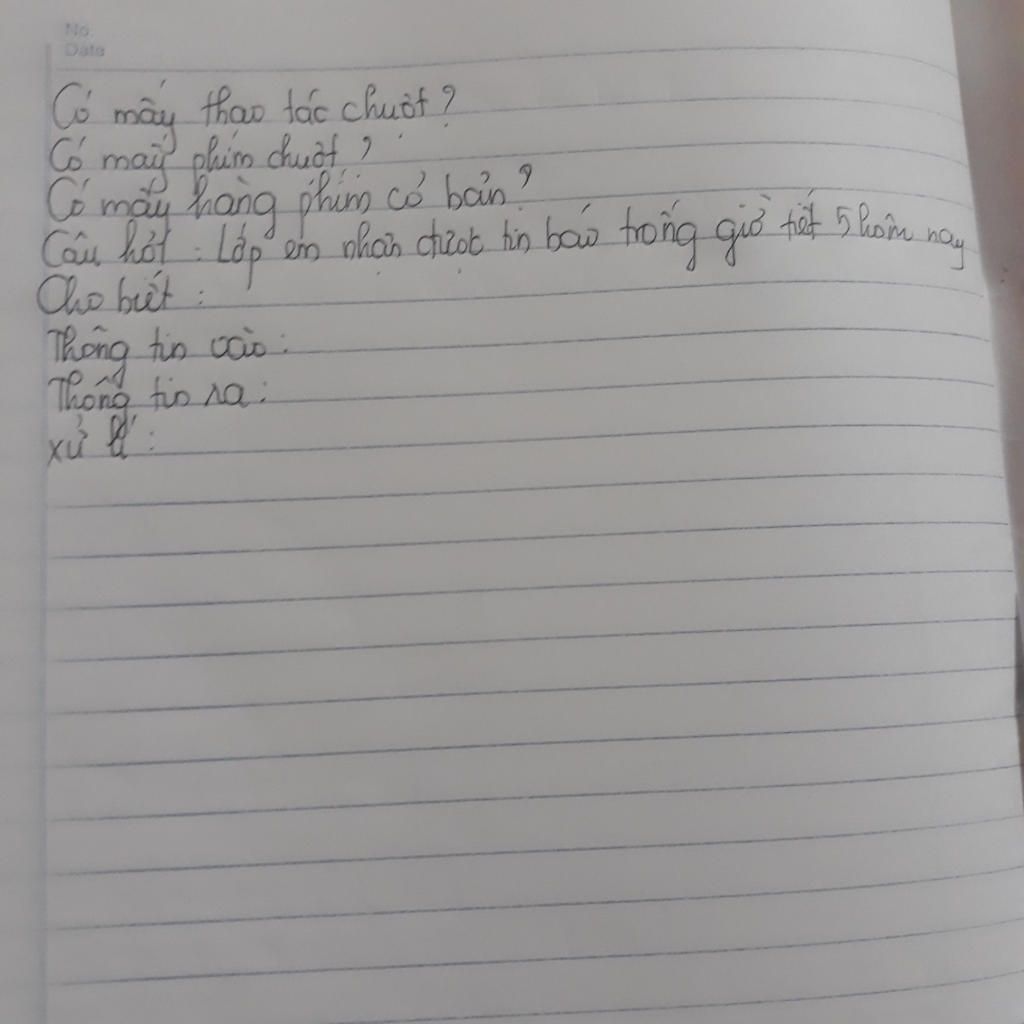 No.
Date
Có mấy thao tác chuột?
Có mấy phím chuột?
Có mấy hàng phím cơ bản?
Câu hỏi : Lớp em nhận được tin báo trống giờ tiết 5 hôm nay
Cho biết :
Thông tin vào :
Thông tin ra :
xử lí :